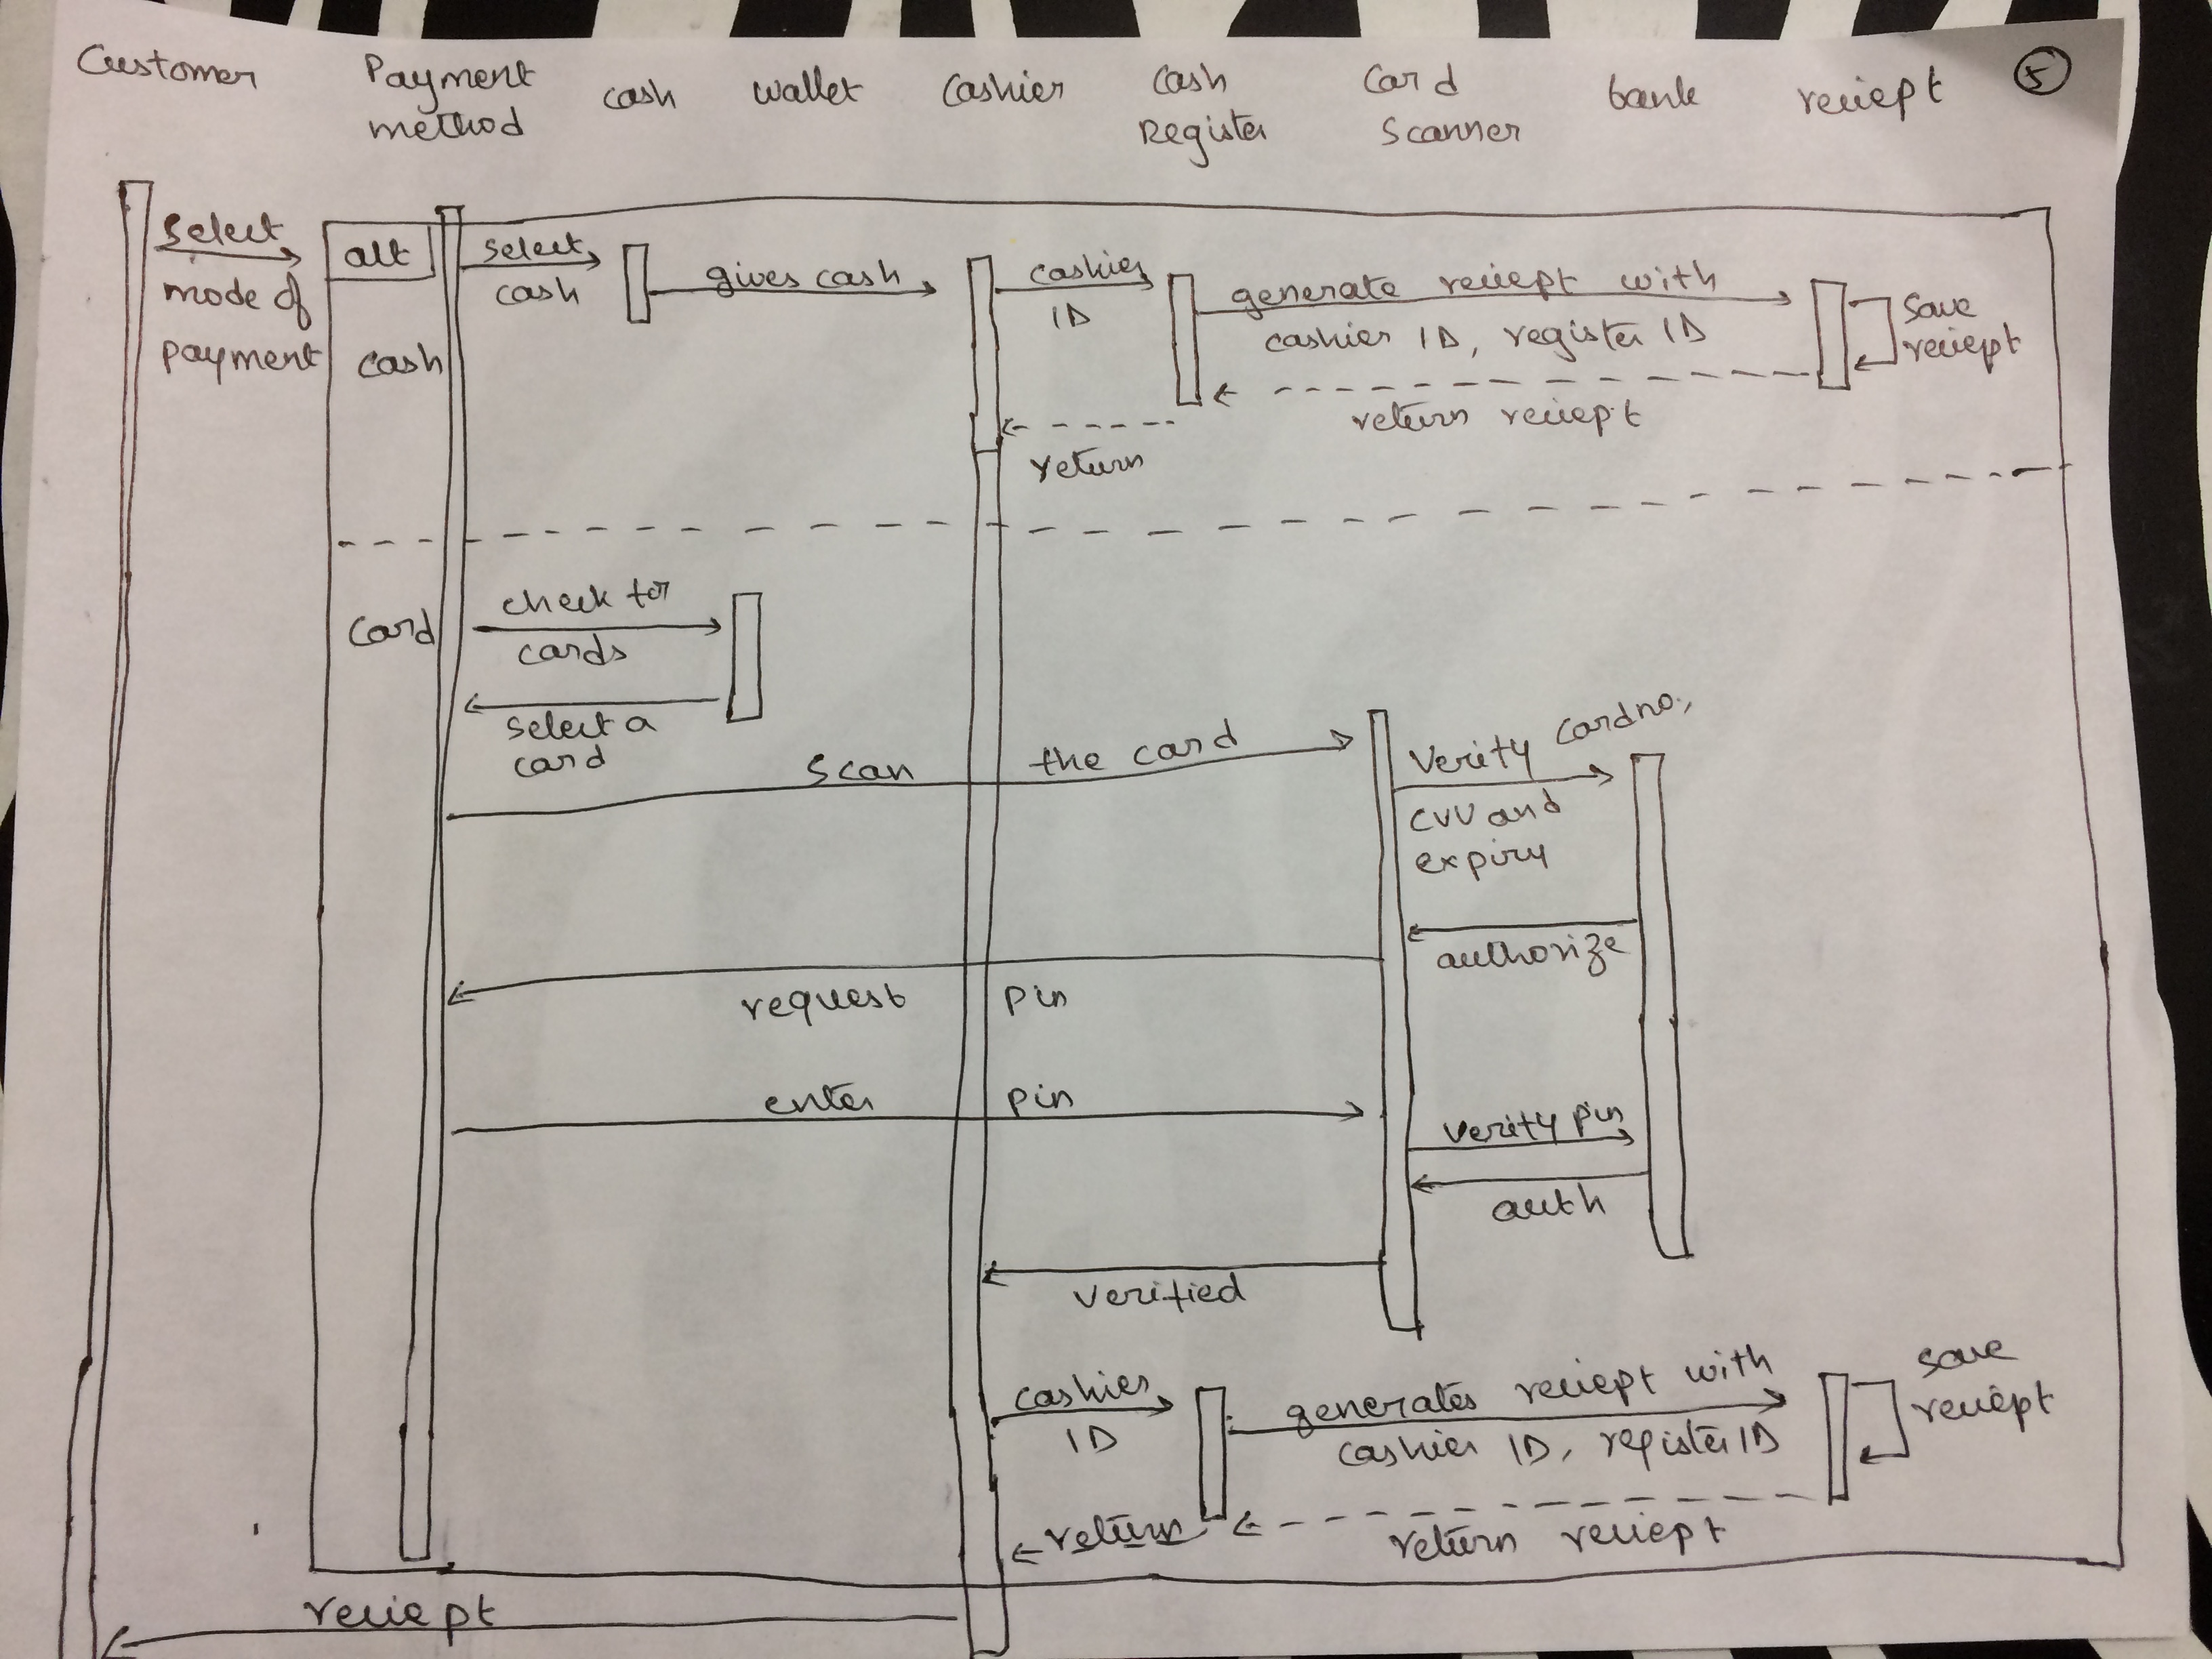 Customer
Payment method
cash
wallet
Cashier
cash Register
Card Scanner
bank
reciept
5
select
mode of
payment
alt
cash
select
cash
gives cash
cashier
ID
generate reciept with
cashier ID, register ID
save
reciept
return reciept
return
card
check for
cards
select a
card
scan the card
Verify card no.,
CVV and
expiry
authorize
request pin
enter pin
verify pin
auth
verified
cashier
ID
generates reciept with
cashier ID, register ID
save
reciept
return reciept
return
reciept